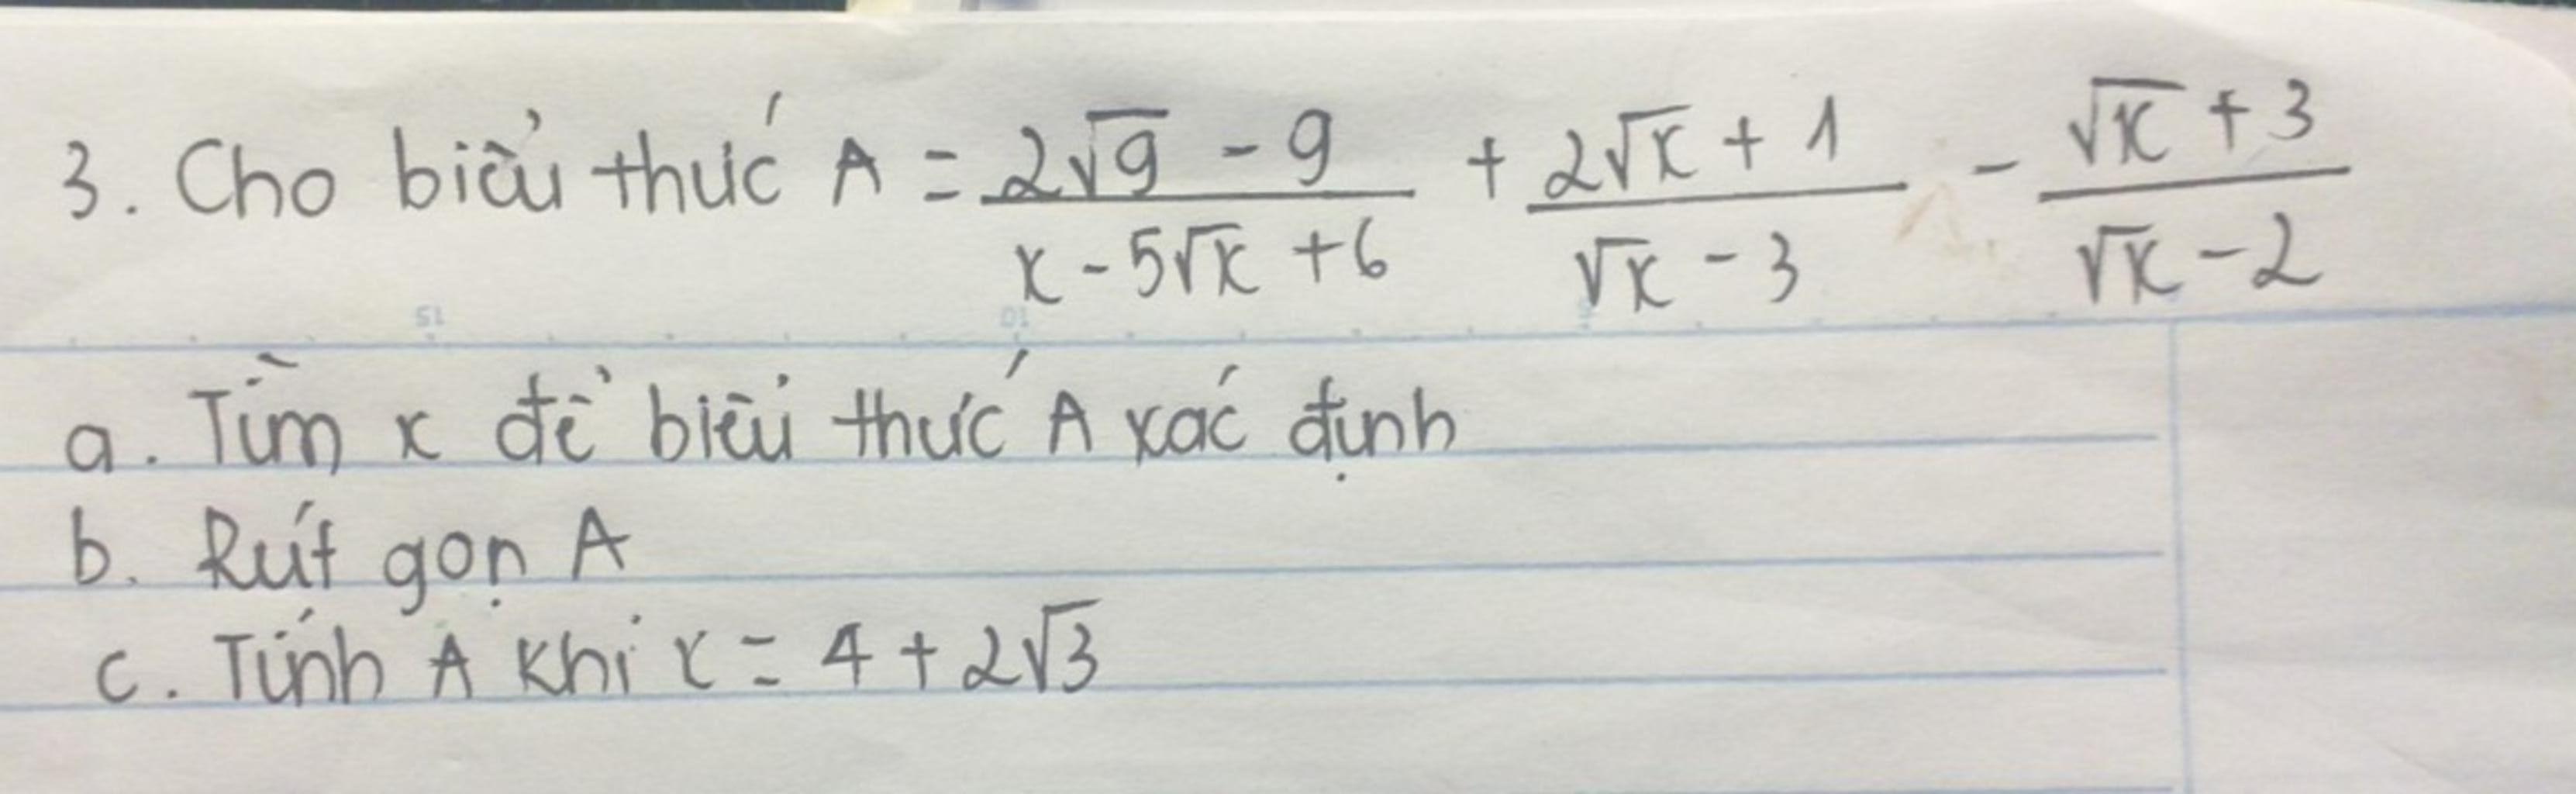 3. Cho biểu thức A = \frac{2\sqrt{9} - 9}{x - 5\sqrt{x} + 6} + \frac{2\sqrt{x} + 1}{\sqrt{x} - 3} - \frac{\sqrt{x} + 3}{\sqrt{x} - 2}
15 10
a. Tìm x để biểu thức A xác định
b. Rút gọn A
c. Tính A khi x = 4 + 2\sqrt{3}